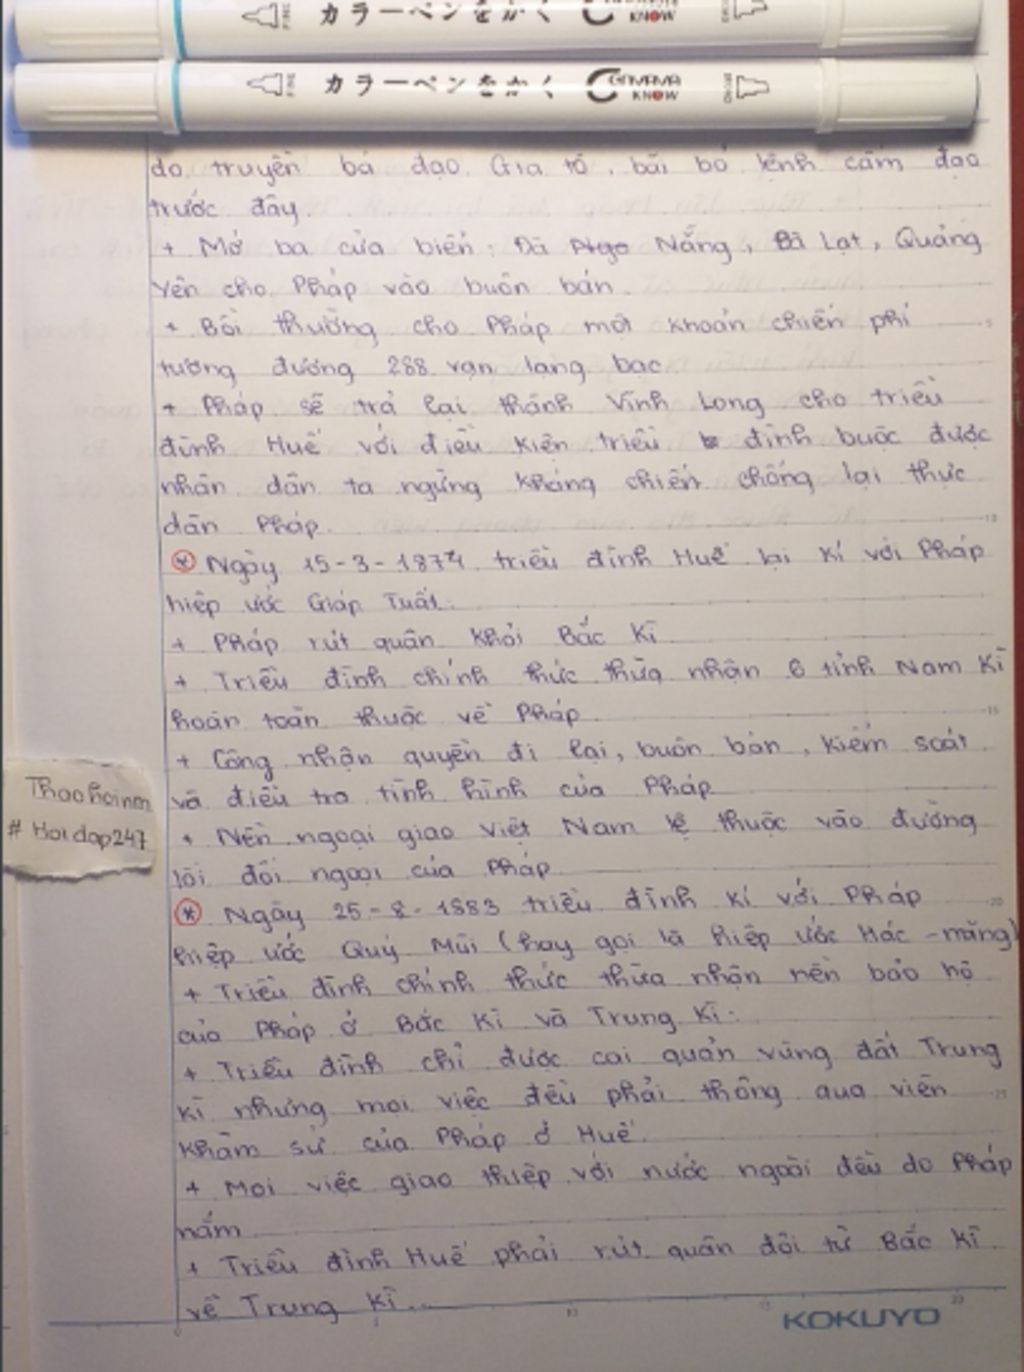 カラーペンをかく KNOW
カラーペンをかく KNOW
do truyền bá đạo Gia tô, bãi bỏ lệnh cấm đạo
trước đây
+ Mở ba cửa biển: Đà Nẵng, Ba Lạt, Quảng
Yên cho Pháp vào buôn bán.
+ Bồi thường cho Pháp một khoản chiến phí
tương đương 288 vạn lạng bạc
+ Pháp sẽ trả lại thành Vĩnh Long cho triều
đình Huế với điều kiện triều đình buộc được
nhân dân ta ngừng kháng chiến chống lại thực
dân Pháp.
* Ngày 15-3-1874 triều đình Huế lại kí với Pháp
hiệp ước Giáp Tuất.
+ Pháp rút quân khỏi Bắc Kì
+ Triều đình chính thức thừa nhận 6 tỉnh Nam Kì
hoàn toàn thuộc về Pháp
+ Công nhận quyền đi lại, buôn bán, kiểm soát
và điều tra tình hình của Pháp
Thaohoinm
#Hoidap247
+ Nền ngoại giao Việt Nam lệ thuộc vào đường
lối đối ngoại của Pháp
* Ngày 25-8-1883 triều đình kí với Pháp
hiệp ước Quý Mùi (hay gọi là hiệp ước Hác-măng)
+ Triều đình chính thức thừa nhận nền bảo hộ
của Pháp ở Bắc Kì và Trung Kì.
+ Triều đình chỉ được cai quản vùng đất Trung
Kì nhưng mọi việc đều phải thông qua viên
khâm sứ của Pháp ở Huế.
+ Mọi việc giao thiệp với nước ngoài đều do Pháp
nắm
+ Triều đình Huế phải rút quân đội từ Bắc Kì
về Trung Kì...
KOKUYO